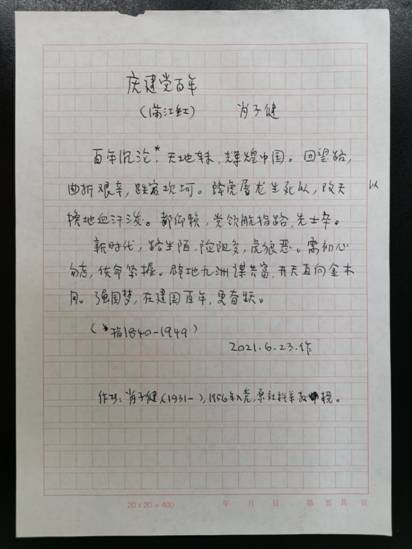 庆建党百年
(满江红) 肖子健
百年沉沦*,天地转,辉煌中国。回望路,
曲折艰辛,跌宕坎坷。降虎屠龙生死以,改天 以
换地血汗泼。都仰赖,党领航指路,先士卒。
新时代,路生陌,险阻多,虎狼恶。需初心
勿忘,使命紧握。辟地九洲谋共富,开天直问金木
月。强国梦,在建国百年,更奋跃。
(*指1840-1949)
2021.6.23.作
作者:肖子健(1931-),1956年入党,原社科学
20×20=400
年 月 日 第 页